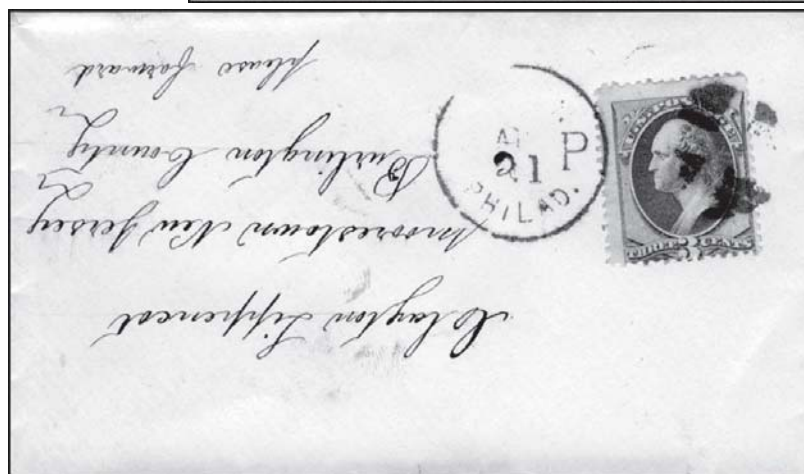 Clayton Lippencot
Moorestown New Jersey
Burlington County
please forward
PHILAD.
21
P
U.S. POSTAGE
THREE CENTS